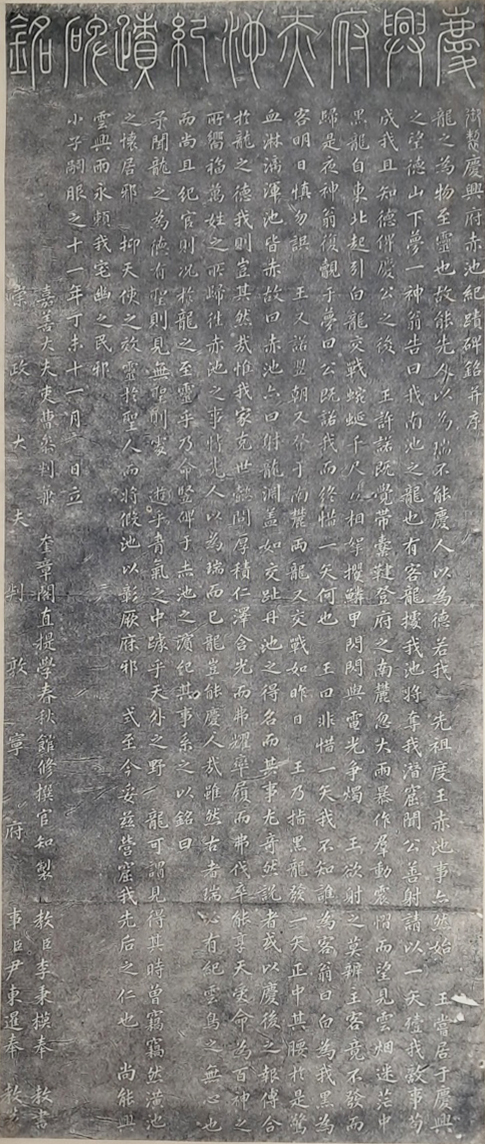 慶興府赤池紀蹟碑銘
御製慶興府赤池紀蹟碑銘并序
龍之為物至靈也故能先外以為瑞不能慶人以為德若我 先祖度王赤池事亦然始 王嘗居于慶興
之望德山下夢一神翁告曰我南池之龍也有客龍據我池將奪我潛窟聞公善射請以一矢殪我敵事苟
成我且知德俾慶公之後 王許諾既覺帶櫜鞬登府之南麓忽大雨暴作羣動震慴而望見雲烟迷茫中
黑龍自東北起引白龍交戰蜿蜒千尺互相拏攫鱗甲閃閃與電光争燭 王欲射之莫辨主客竟不發而
歸是夜神翁復覿于夢曰公既諾我而終惜一矢何也 王曰非惜一矢我不知誰為客翁曰白為我黑為
客明日慎勿誤 王又諾翌朝又登于南麓兩龍又交戰如昨日 王乃指黑龍發一矢正中其腰於是驚
血淋漓渾池皆赤故曰赤池亦曰射龍淵蓋如交趾丹池之得名而其事尤奇然說者或以慶後之報傅合
於龍之德我則豈其然哉惟我家克世懿閥厚積仁澤含光而弗耀率履而弗伐卒能享天受命為百神之
所嚮為萬姓之所歸徃赤池之事特先人以為瑞而已龍豈能慶人哉雖然古者瑞必有紀雲鳥之無心也
而尚且紀官則况於龍之至靈乎乃命竪碑于赤池之濱紀其事系之以銘曰
予聞龍之為德有聖則見無聖則處 遊乎青氣之中踔乎天外之野 龍可謂見得其時曾竊竊然潢池
之懷居邪 抑天使之效靈於聖人而將假池以彰厥庥邪 式至今妥茲營窟我先后之仁也 尚能興
雲興雨而永頼我宅幽之民邪
小子嗣服之十一年丁未十一月 日立
嘉善大夫吏曹參判兼 奎章閣直提學春秋館修撰官知製 教臣李秉模奉 教書
嘉 政 大 夫 判 敦 寧 府 事臣尹東暹奉 教